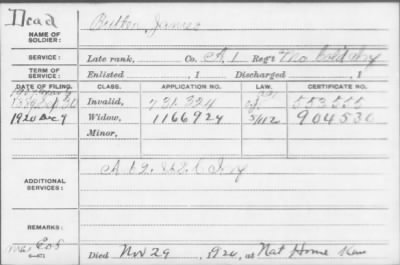 Dead
NAME OF SOLDIER: Button, James
SERVICE: Late rank, Co. A, 1 Reg't Mo. Cold Inf
TERM OF SERVICE: Enlisted , 1 Discharged , 1
DATE OF FILING. CLASS. APPLICATION NO. LAW. CERTIFICATE NO.
Invalid, 731.324 553555
1920 Dec 9 Widow, 1166924 904530
Minor,
ADDITIONAL SERVICES: A 62 U.S.C. Inf
REMARKS:
6—671 Died Nov 29, 1920, at Nat Home Kan